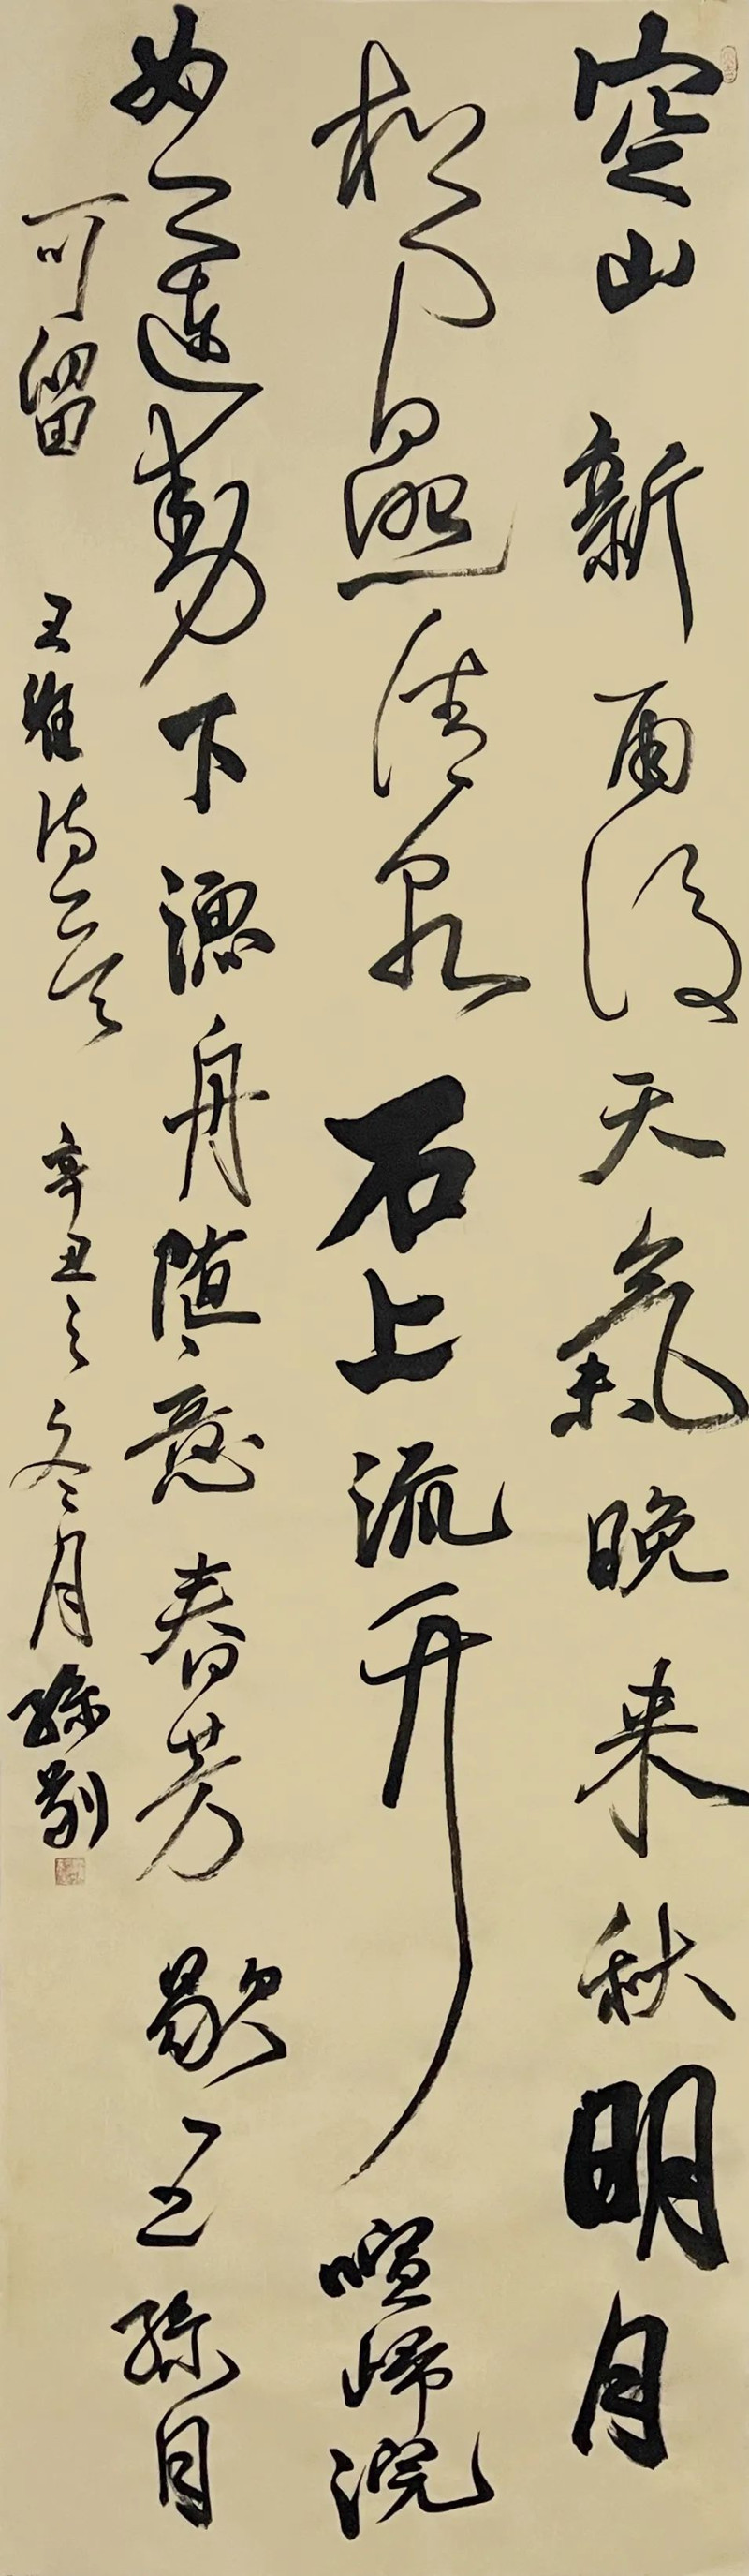 空山新雨後天氣晚来秋明月
松間照清泉石上流竹喧歸浣
女蓮動下漁舟隨意春芳歇王孫自
可留 王維詩一首 辛丑之冬月 孫